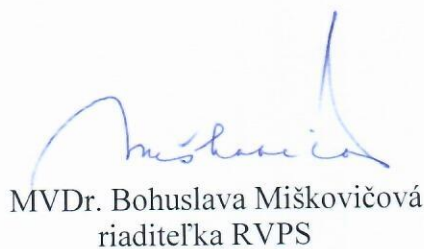 Miškovičová
MVDr. Bohuslava Miškovičová
riaditeľka RVPS